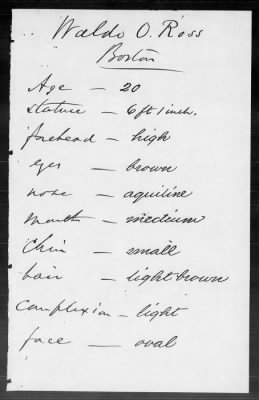 Waldo O. Ross
Boston
Age — 20
stature — 6 ft 1 inch.
forehead — high
eyes — brown
nose — aquiline
mouth — medium
Chin — small
hair — light brown
Complexion — light
face — oval